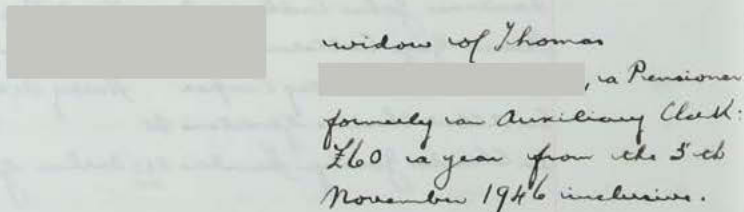 widow of Thomas
, a Pensioner
formerly an Auxiliary Clerk:
£60 a year from the 5th
November 1946 inclusive.